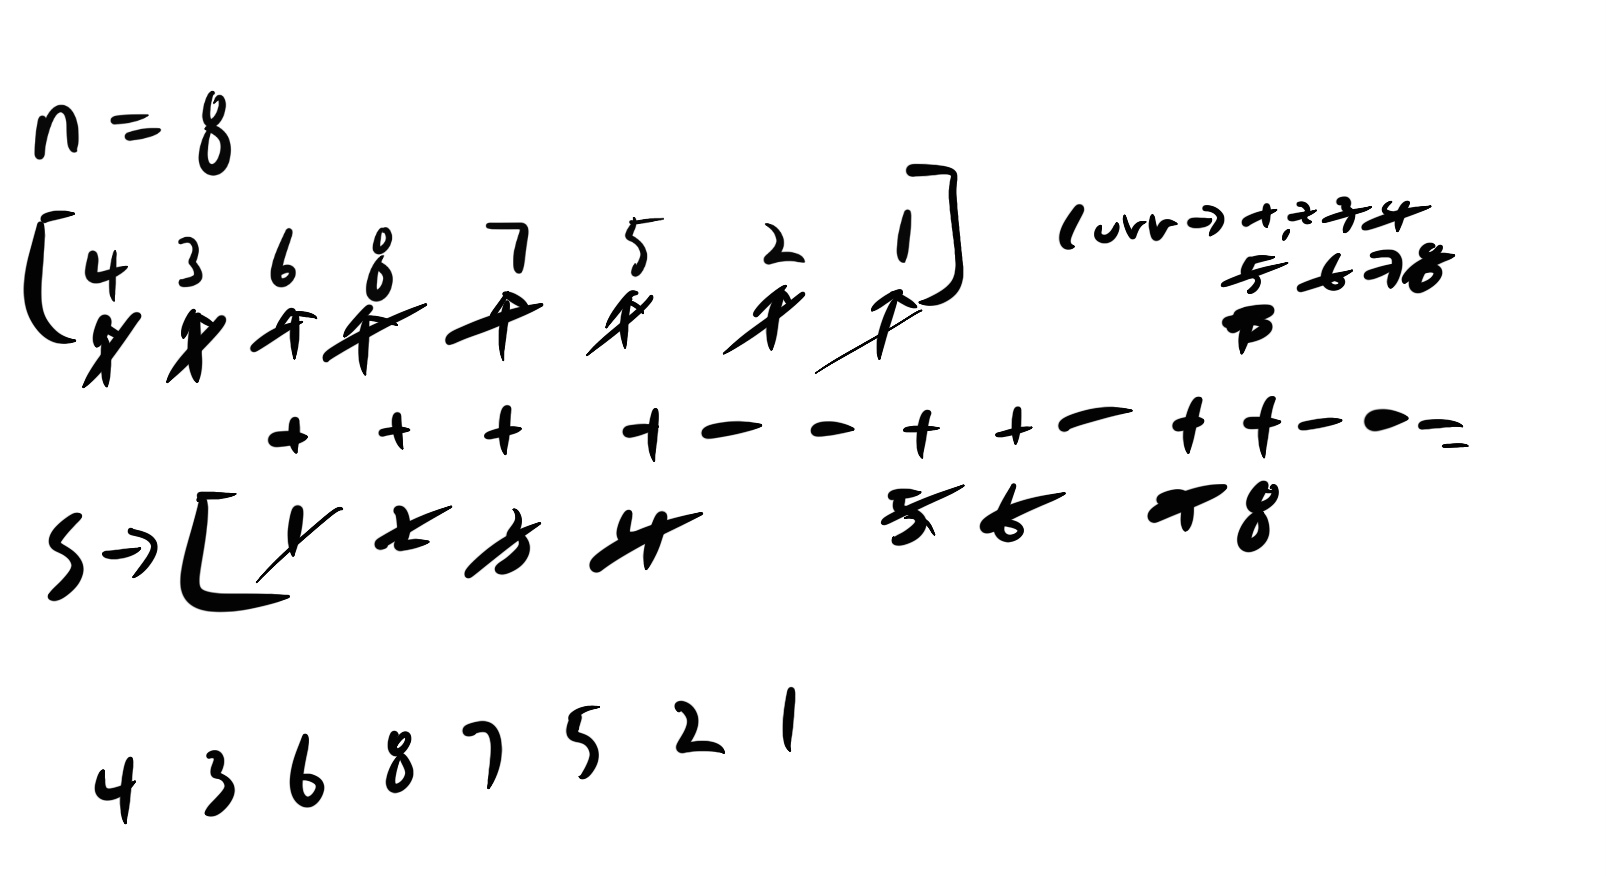 n = 8
[ 4 3 6 8 7 5 2 1 ]
curr → 1, 2 3 4
5 6 7 8
+ + + + - - + + - + + - - -
S → [ 1 2 3 4 5 6 7 8
4 3 6 8 7 5 2 1